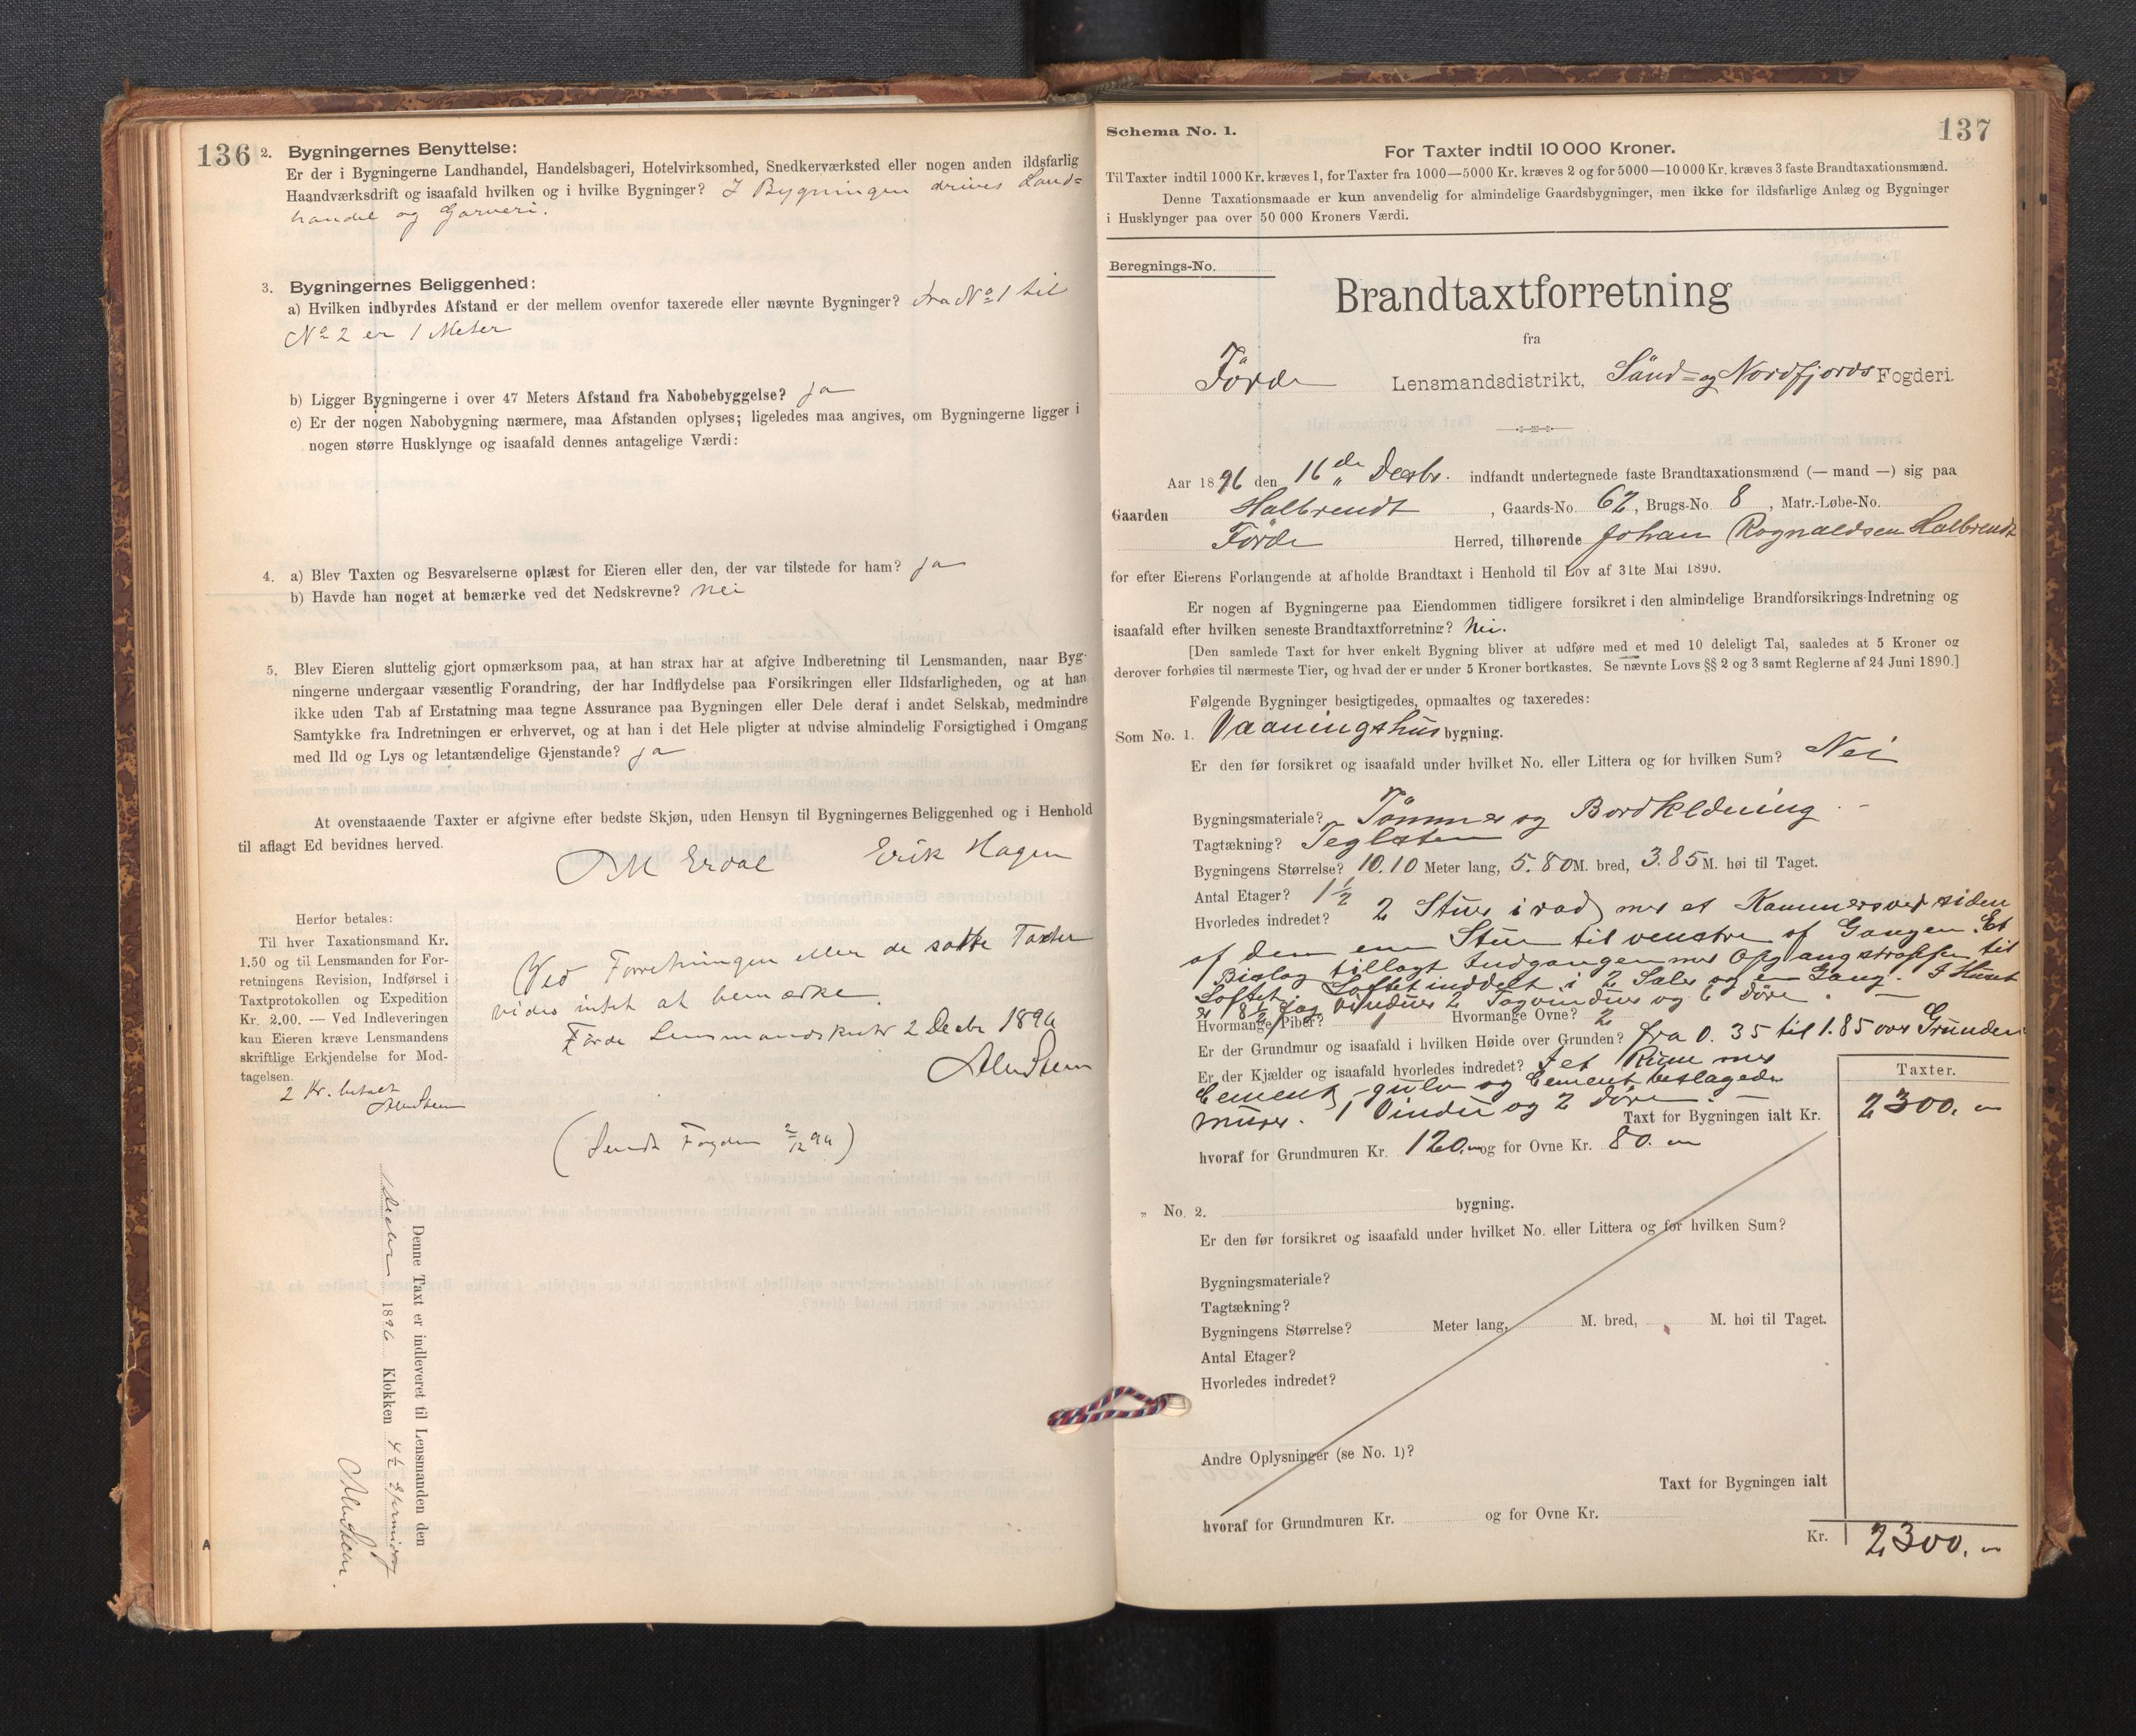 136
2. Bygningernes Benyttelse:
Er der i Bygningerne Landhandel, Handelsbageri, Hotelvirksomhed, Snedkerværksted eller nogen anden ildsfarlig
Haandværksdrift og isaafald hvilken og i hvilke Bygninger? I Bygningen drives Land=
handel og Garveri.
3. Bygningernes Beliggenhed:
a) Hvilken indbyrdes Afstand er der mellem ovenfor taxerede eller nævnte Bygninger? fra No 1 til
No 2 er 1 Meter
b) Ligger Bygningerne i over 47 Meters Afstand fra Nabobebyggelse? ja
c) Er der nogen Nabobygning nærmere, maa Afstanden oplyses; ligeledes maa angives, om Bygningerne ligger i
nogen større Husklynge og isaafald dennes antagelige Værdi:
4. a) Blev Taxten og Besvarelserne oplæst for Eieren eller den, der var tilstede for ham? ja
b) Havde han noget at bemærke ved det Nedskrevne? nei
5. Blev Eieren sluttelig gjort opmærksom paa, at han strax har at afgive Indberetning til Lensmanden, naar Byg-
ningerne undergaar væsentlig Forandring, der har Indflydelse paa Forsikringen eller Ildsfarligheden, og at han
ikke uden Tab af Erstatning maa tegne Assurance paa Bygningen eller Dele deraf i andet Selskab, medmindre
Samtykke fra Indretningen er erhvervet, og at han i det Hele pligter at udvise almindelig Forsigtighed i Omgang
med Ild og Lys og letantændelige Gjenstande? ja
At ovenstaaende Taxter er afgivne efter bedste Skjøn, uden Hensyn til Bygningernes Beliggenhed og i Henhold
til aflagt Ed bevidnes herved.
Erdal Erik Hagen
Herfor betales:
Til hver Taxationsmand Kr.
1.50 og til Lensmanden for For-
retningens Revision, Indførsel i
Taxtprotokollen og Expedition
Kr. 2.00. — Ved Indleveringen
kan Eieren kræve Lensmandens
skriftlige Erkjendelse for Mod-
tagelsen.
2 Kr. betalt
Ved Forretningen eller de satte Taxter
vides intet at bemærke.
Førde Lensmandskontr 2 Decbr 1896
(Sendt Fogden 2/12 96)
Denne Taxt er indleveret til Lensmanden den
1896 Klokken 4 1/2
A
137
Schema No. 1.
For Taxter indtil 10 000 Kroner.
Til Taxter indtil 1000 Kr. kræves 1, for Taxter fra 1000—5000 Kr. kræves 2 og for 5000—10 000 Kr. kræves 3 faste Brandtaxationsmænd.
Denne Taxationsmaade er kun anvendelig for almindelige Gaardsbygninger, men ikke for ildsfarlige Anlæg og Bygninger
i Husklynger paa over 50 000 Kroners Værdi.
Beregnings-No.
Brandtaxtforretning
fra
Førde Lensmandsdistrikt, Sünd= og Nordfjords Fogderi.
Aar 1896 den 16de Decbr. indfandt undertegnede faste Brandtaxationsmænd (— mand —) sig paa
Gaarden Halbrendt, Gaards-No. 62, Brugs-No. 8, Matr.-Løbe-No.
Førde Herred, tilhørende Johan Rognaldsen Halbrendt
for efter Eierens Forlangende at afholde Brandtaxt i Henhold til Lov af 31te Mai 1890.
Er nogen af Bygningerne paa Eiendommen tidligere forsikret i den almindelige Brandforsikrings-Indretning og
isaafald efter hvilken seneste Brandtaxtforretning? Nei.
[Den samlede Taxt for hver enkelt Bygning bliver at udføre med et med 10 deleligt Tal, saaledes at 5 Kroner og
derover forhøies til nærmeste Tier, og hvad der er under 5 Kroner bortkastes. Se nævnte Lovs §§ 2 og 3 samt Reglerne af 24 Juni 1890.]
Følgende Bygninger besigtigedes, opmaaltes og taxeredes:
Som No. 1. Vaaningshus bygning.
Er den før forsikret og isaafald under hvilket No. eller Littera og for hvilken Sum? Nei
Bygningsmateriale? Tømmer og Bordklædning
Tagtækning? Teglsten
Bygningens Størrelse? 10.10 Meter lang, 5.80 M. bred, 3.85 M. høi til Taget.
Antal Etager? 1 1/2
Hvorledes indredet? 2 Stuer i rad med et Kammers ved siden
af den ene Stue til venstre af Gangen. Et
Bislag tillagt Indgangen med Opgangstrappe til
Loftet. Loftet inddelt i 2 Sale og en Gang. I Huset
er 8 1/2 fag Vinduer 2 Tagvinduer og 6 Døre.
Hvormange Piber? 1 Hvormange Ovne? 2
Er der Grundmur og isaafald i hvilken Høide over Grunden? fra 0.35 til 1.85 over Grunden
Er der Kjælder og isaafald hvorledes indredet? I et Rum med
Cement gulv og Cement beslagede
mure. 1 Vindu og 2 døre
Taxter.
Taxt for Bygningen ialt Kr. 2300.
hvoraf for Grundmuren Kr. 120. og for Ovne Kr. 80.
„ No. 2. bygning.
Er den før forsikret og isaafald under hvilket No. eller Littera og for hvilken Sum?
Bygningsmateriale?
Tagtækning?
Bygningens Størrelse? Meter lang, M. bred, M. høi til Taget.
Antal Etager?
Hvorledes indredet?
Andre Oplysninger (se No. 1)?
Taxt for Bygningen ialt
hvoraf for Grundmuren Kr. og for Ovne Kr.
Kr. 2300.